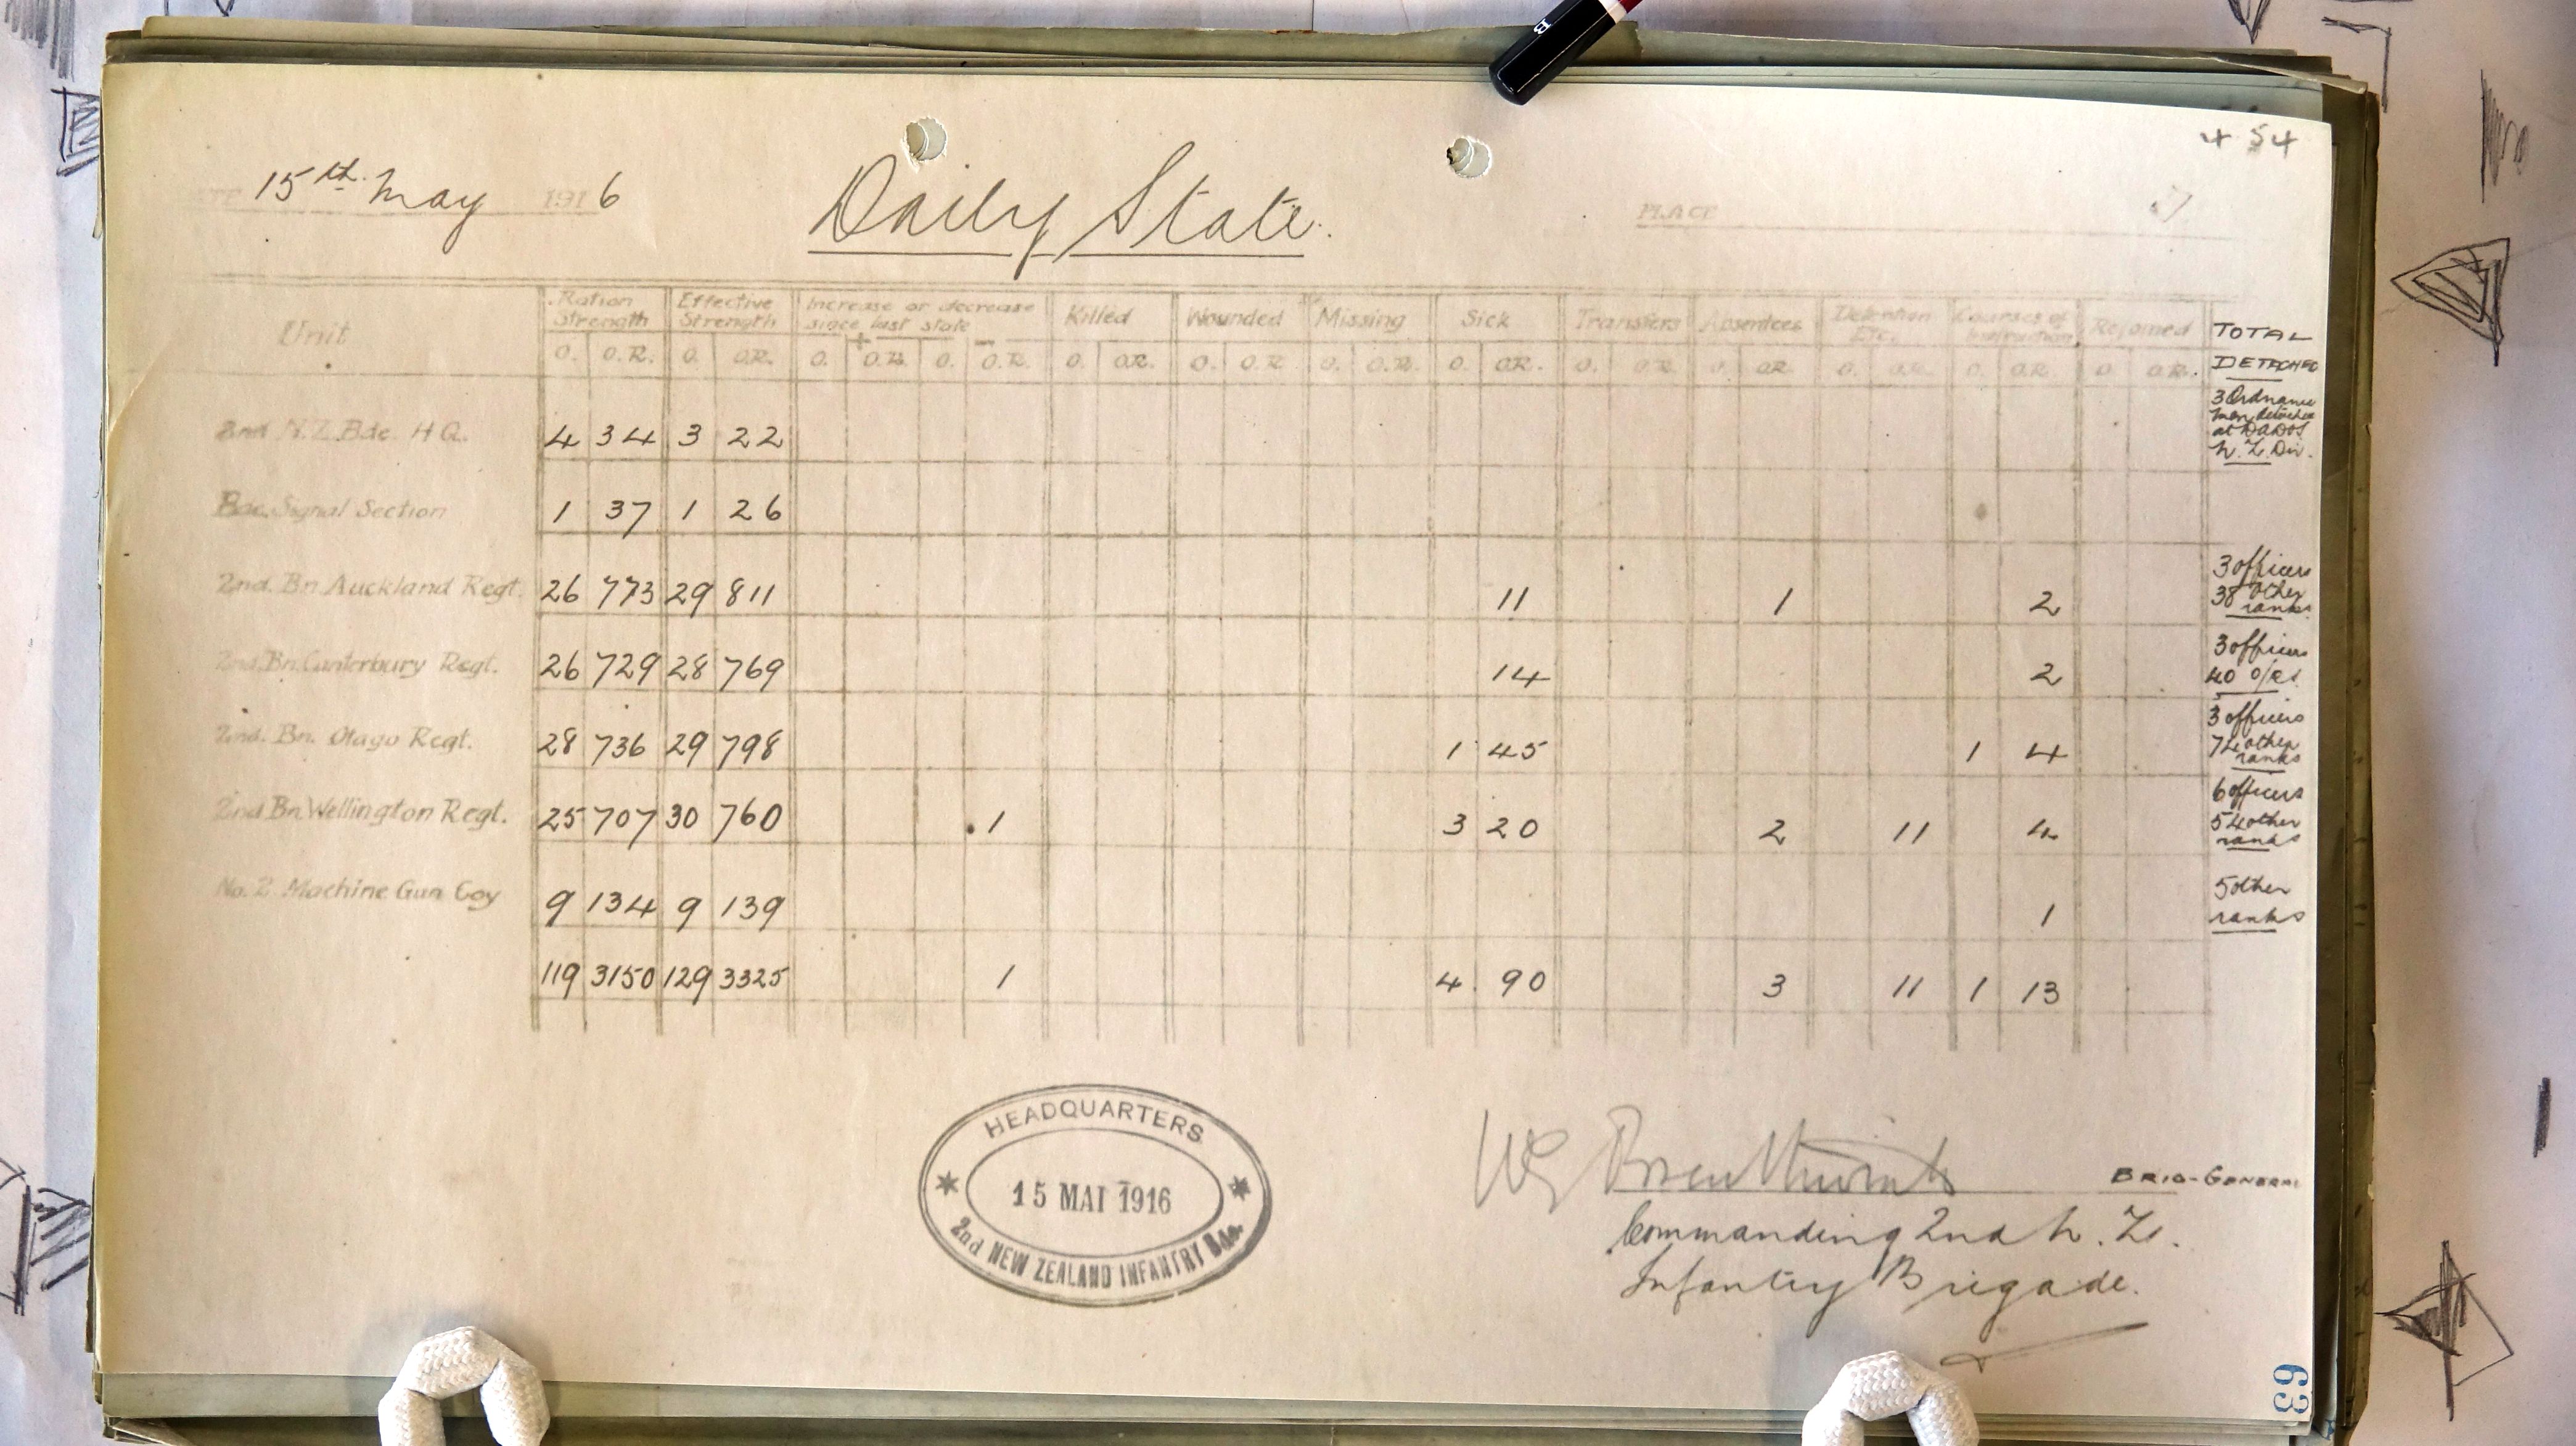 4 54
DATE 15th May 1916
Daily State.
PLACE
Unit Ration Strength Effective Strength Increase or decrease since last state + - Killed Wounded Missing Sick Transfers Absentees Detention Etc. Courses of Instruction Rejoined TOTAL DETACHED
O. O.R. O. O.R. O. O.R. O. O.R. O. O.R. O. O.R. O. O.R. O. O.R. O. O.R. O. O.R. O. O.R. O. O.R. O. O.R.
2nd N.Z. Bde. H.Q. 4 34 3 22 3 Ordnance men detached at DADOS N.Z. Div.
Bde. Signal Section 1 37 1 26
2nd. Bn Auckland Regt. 26 773 29 811 11 1 2 3 officers 38 other ranks
2nd. Bn. Canterbury Regt. 26 729 28 769 14 2 3 officers 40 o/rs
2nd. Bn. Otago Regt. 28 736 29 798 1 45 1 4 3 officers 74 other ranks
2nd Bn Wellington Regt. 25 707 30 760 1 3 20 2 11 4 6 officers 54 other ranks
No. 2 Machine Gun Coy 9 134 9 139 1 5 other ranks
119 3150 129 3325 1 4 90 3 11 1 13
HEADQUARTERS
15 MAI 1916
2nd NEW ZEALAND INFANTRY Bde.
BRIG-GENERAL
Commanding 2nd N.Z.
Infantry Brigade.
63
B